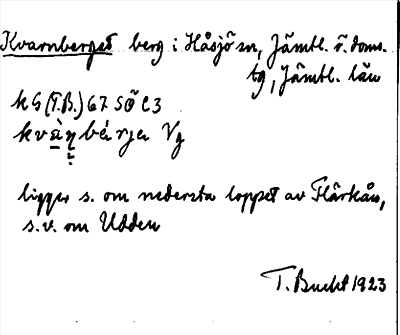 Kvarnberget berg i Håsjö sn, Jämtl. ö. doms.
tg, Jämtl. län
kG (T.B.) 67 SÖ C3
kvàṇbärja Vg
ligger s. om nedersta loppet av Flärkån,
s.v. om Udden
T. Bucht 1923